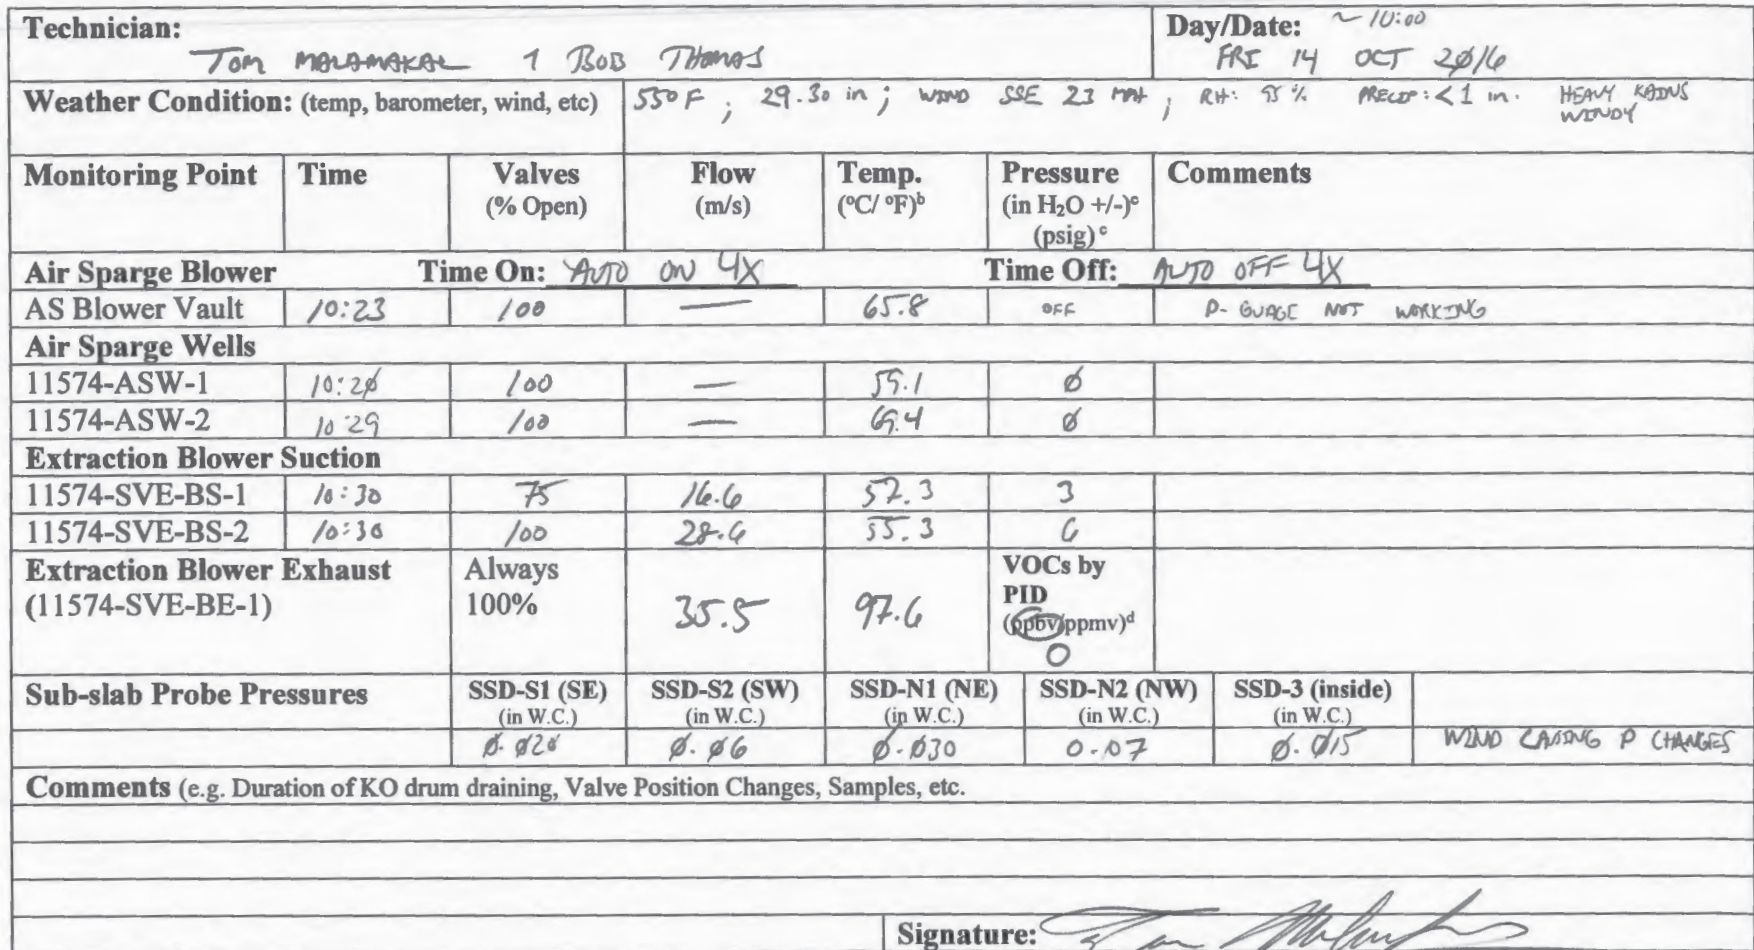 Technician: Day/Date: ~10:00
TOM MALAMAKAL 1 BOB THOMAS FRI 14 OCT 2016
Weather Condition: (temp, barometer, wind, etc) 550F ; 29.30 in ; WIND SSE 23 MPH ; RH: 95% PRECIP: <1 in. HEAVY RAINS
WINDY
Monitoring Point Time Valves Flow Temp. Pressure Comments
(% Open) (m/s) (°C/ °F)ᵇ (in H₂O +/-)ᵉ
(psig) ᶜ
Air Sparge Blower Time On: AUTO ON 4X Time Off: AUTO OFF 4X
AS Blower Vault 10:23 100 — 65.8 OFF P-GUAGE NOT WORKING
Air Sparge Wells
11574-ASW-1 10:20 100 — 59.1 0
11574-ASW-2 10:29 100 — 69.4 0
Extraction Blower Suction
11574-SVE-BS-1 10:30 75 16.6 57.3 3
11574-SVE-BS-2 10:30 100 28.6 55.3 6
Extraction Blower Exhaust Always VOCs by
(11574-SVE-BE-1) 100% 35.5 97.6 PID
(ppbv/ppmv)ᵈ
0
Sub-slab Probe Pressures SSD-S1 (SE) SSD-S2 (SW) SSD-N1 (NE) SSD-N2 (NW) SSD-3 (inside)
(in W.C.) (in W.C.) (in W.C.) (in W.C.) (in W.C.)
0.020 0.06 0.030 0.07 0.015 WIND CAUSING P CHANGES
Comments (e.g. Duration of KO drum draining, Valve Position Changes, Samples, etc.
Signature: